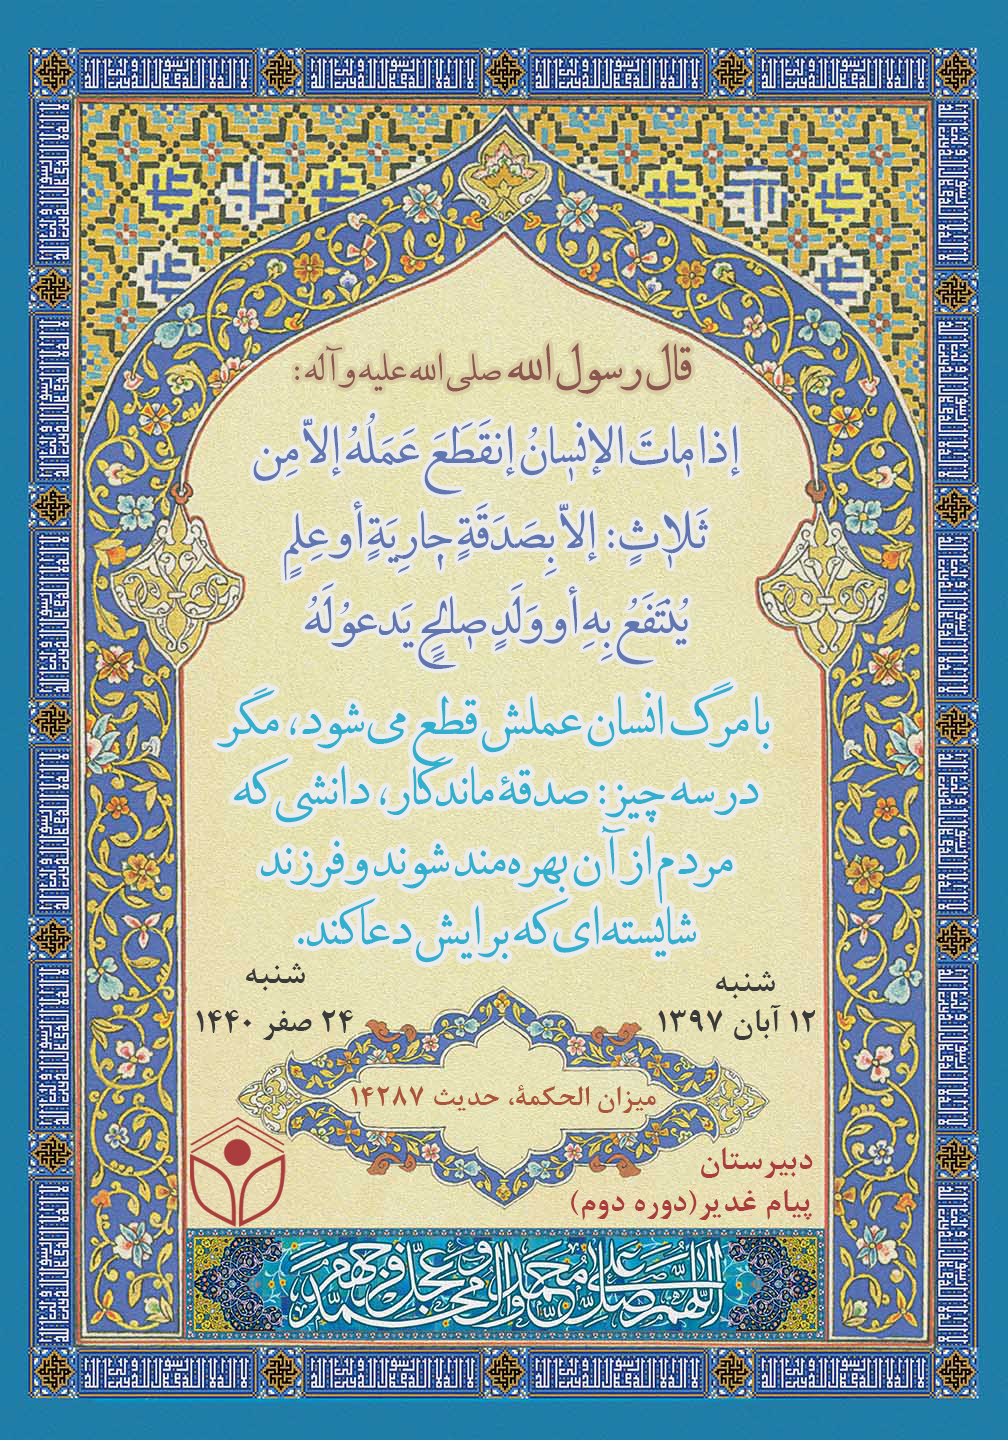 قال رسول الله صلی الله علیه و آله:
إذا ماتَ الإنسانُ إنقَطَعَ عَمَلُهُ إلاّ مِن
ثَلاثٍ: إلاّ بِصَدَقَةٍ جارِیَةٍ أو عِلمٍ
یُنتَفَعُ بِهِ أو وَلَدٍ صالِحٍ یَدعوُ لَهُ
با مرگ انسان عملش قطع می‌شود، مگر
در سه چیز: صدقهٔ ماندگار، دانشی که
مردم از آن بهره‌مند شوند و فرزند
شایسته‌ای که برایش دعا کند.
شنبه
۱۲ آبان ۱۳۹۷
شنبه
۲۴ صفر ۱۴۴۰
میزان الحکمهٔ، حدیث ۱۴۲۸۷
دبیرستان
پیام غدیر(دوره دوم)
اللهم صل علی محمد و آل محمد و عجل فرجهم